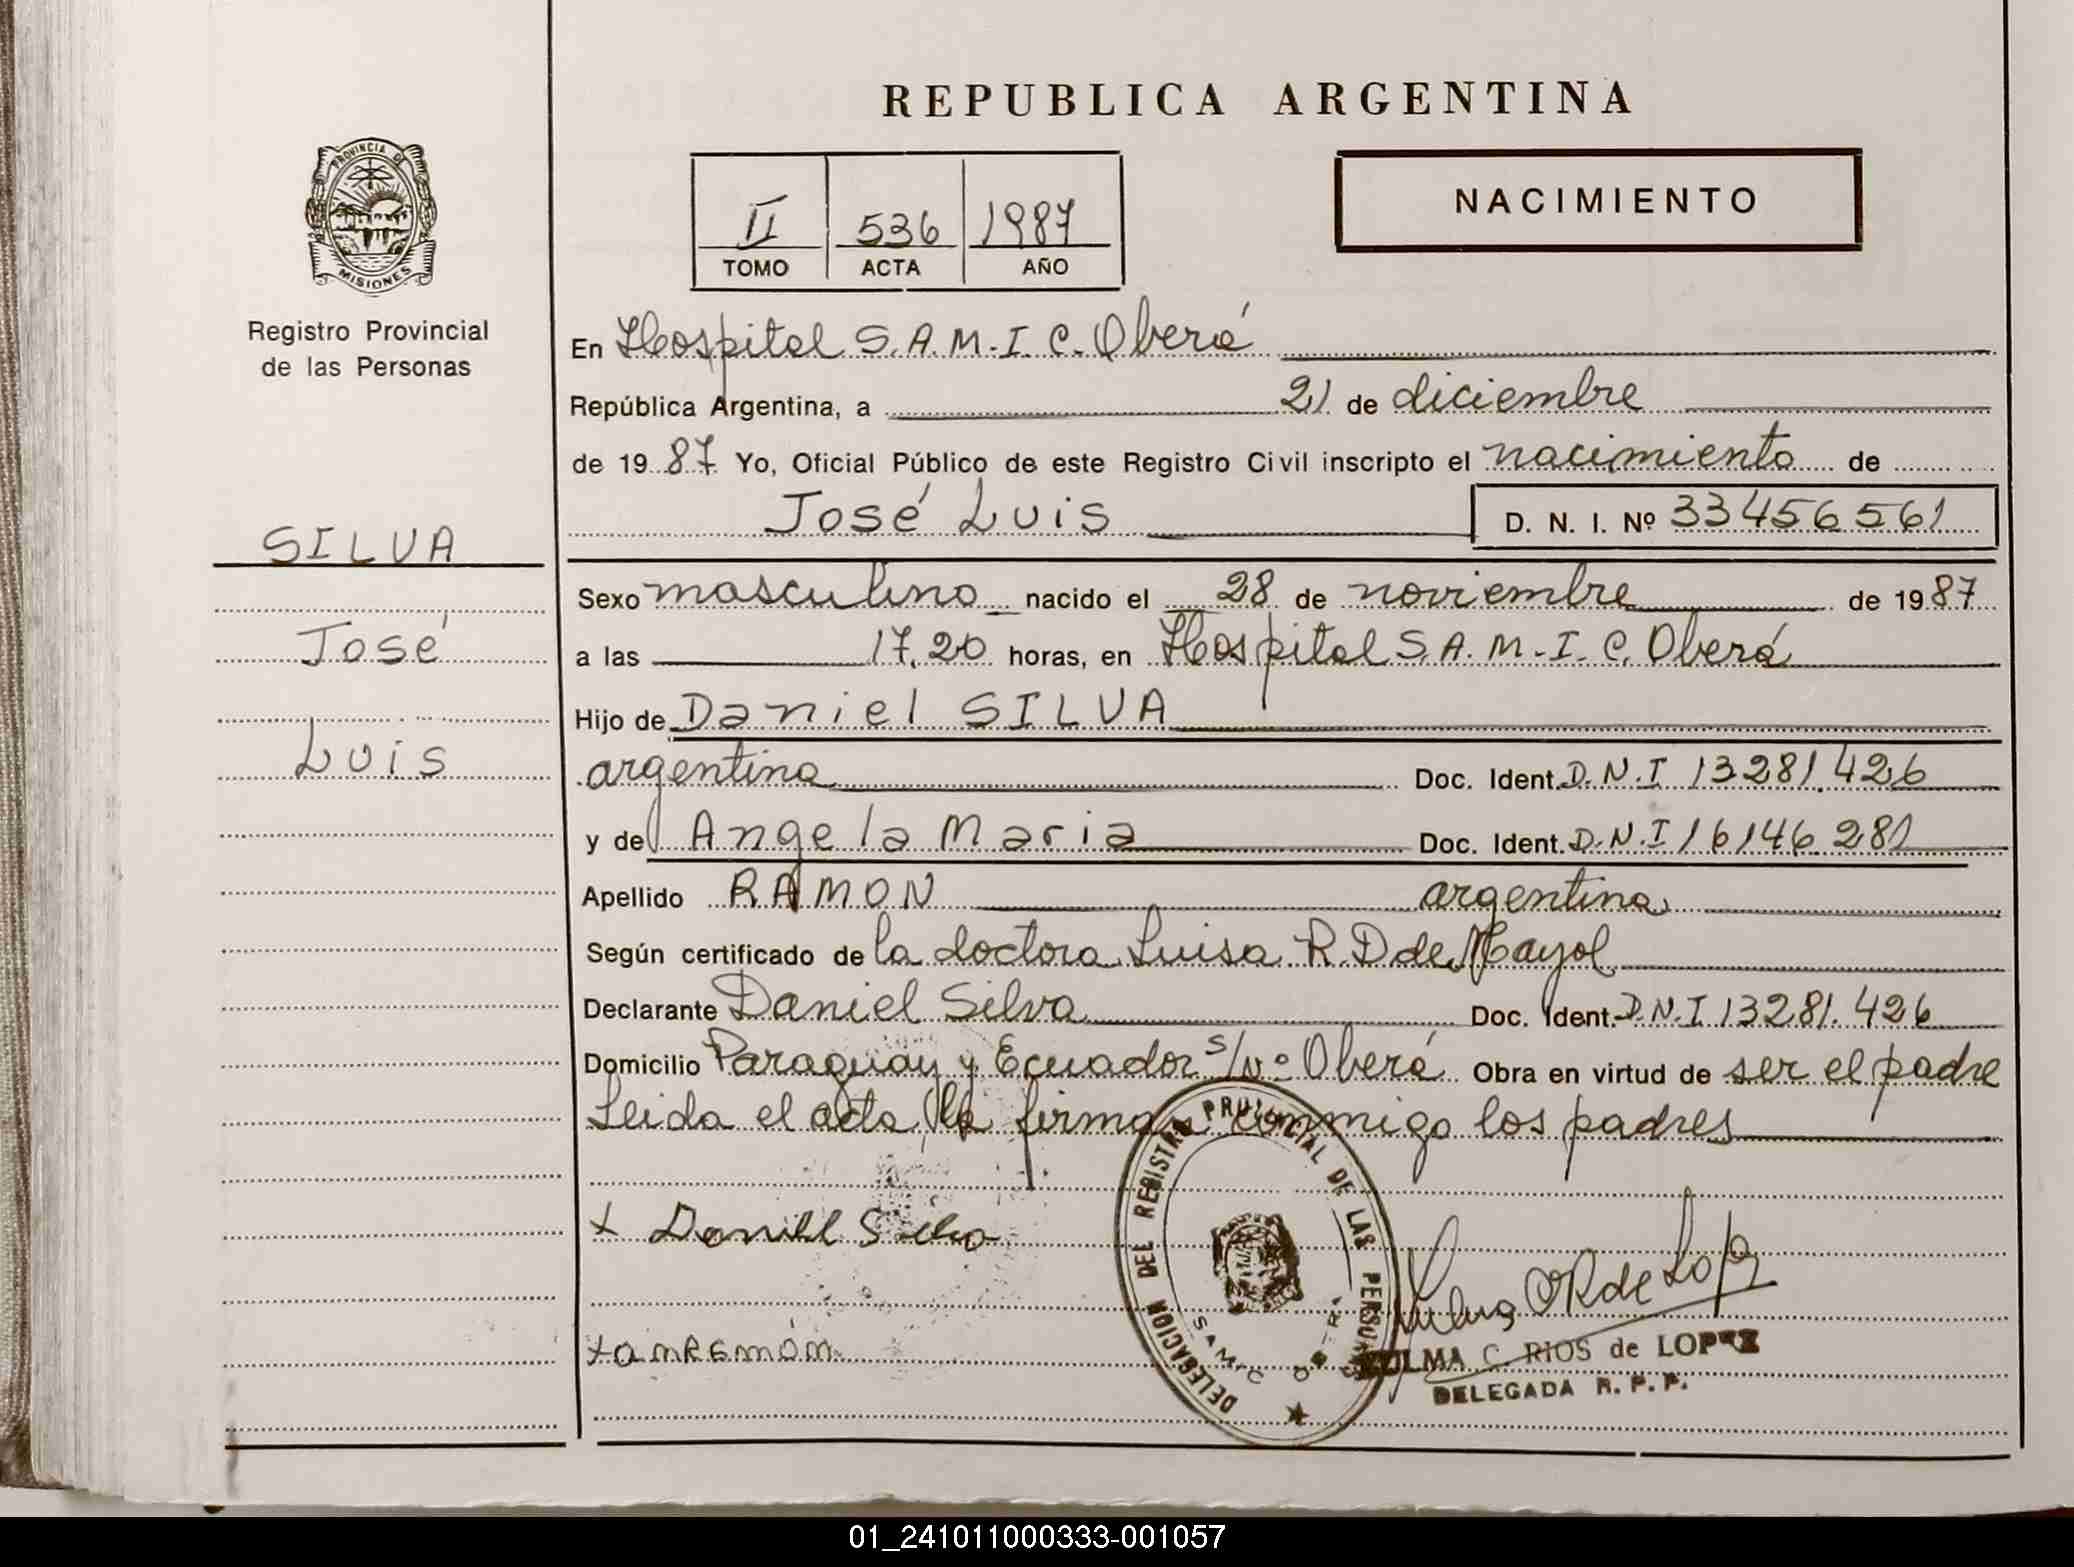 REPUBLICA ARGENTINA
PROVINCIA DE
MISIONES
Registro Provincial
de las Personas
II 536 1987
TOMO ACTA AÑO
NACIMIENTO
En Hospital S.A.M.I.C. Oberá
República Argentina, a 21 de diciembre
de 1987 Yo, Oficial Público de este Registro Civil inscripto el nacimiento de
José Luis D. N. I. Nº 33456561
SILVA
José
Luis
Sexo masculino nacido el 28 de noviembre de 1987
a las 17.20 horas, en Hospital S.A.M.I.C. Oberá
Hijo de Daniel SILVA
argentina Doc. Ident. D.N.I 13281.426
y de Angela Maria Doc. Ident. D.N.I 16146.281
Apellido RAMON argentina
Según certificado de la doctora Luisa R. D de Mayol
Declarante Daniel Silva Doc. Ident. D.N.I 13281.426
Domicilio Paraguay y Ecuador s/nº Oberá Obra en virtud de ser el padre
Leida el acta la firman conmigo los padres
x Daniel Silva
DELEGACION DEL REGISTRO PROVINCIAL DE LAS PERSONAS
SAMIC
R de Lopez
ZULMA C. RIOS de LOPEZ
DELEGADA R. P. P.
01_241011000333-001057